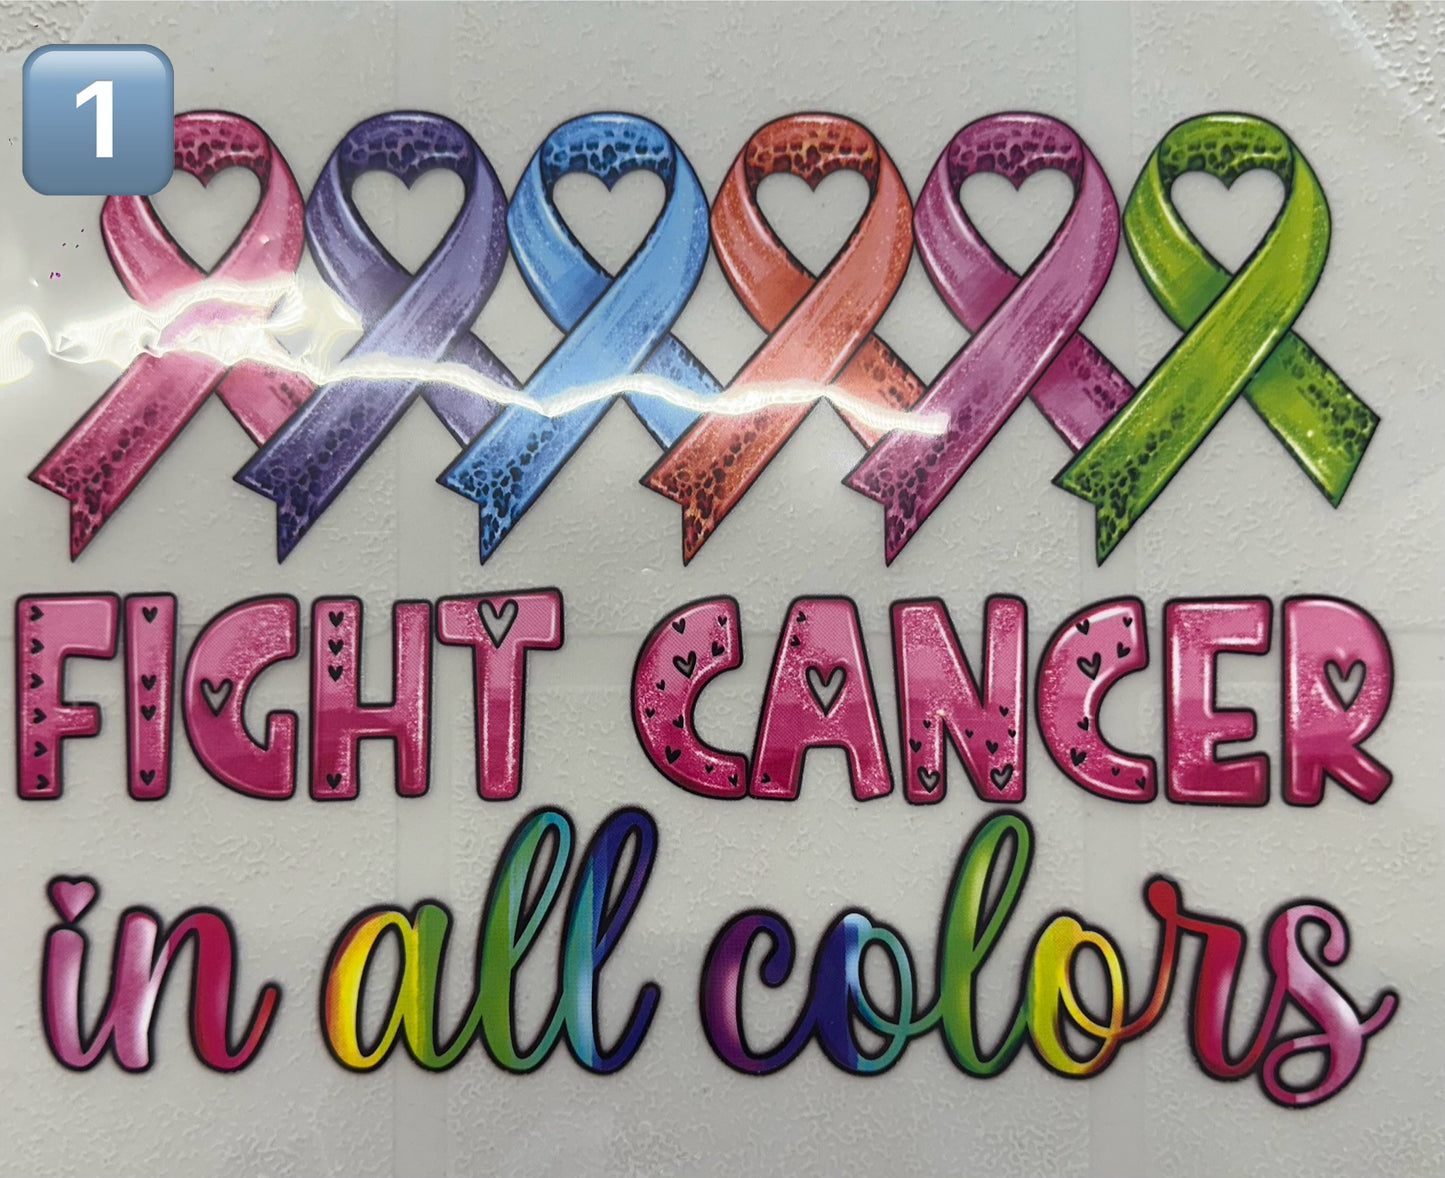 1
FIGHT CANCER
in all colors